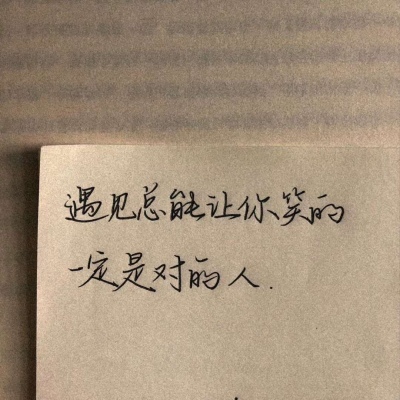 遇见总能让你笑的
一定是对的人.